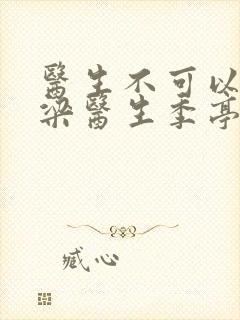 醫生不可以
梁醫生季亭
臧心